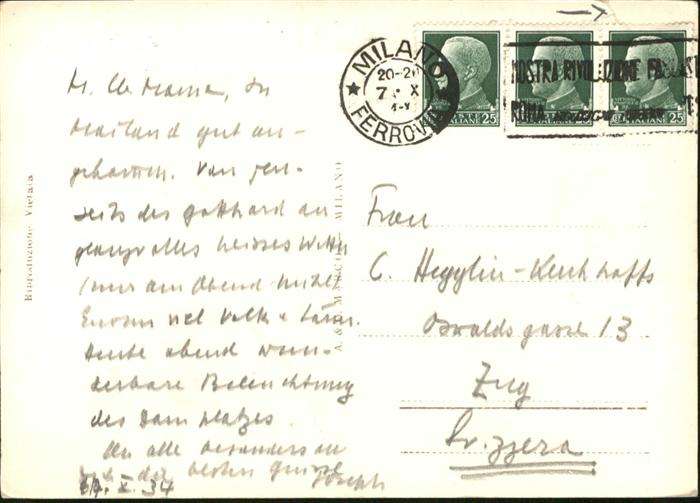 M. lb. Mama, in
Mailand gut an-
gekommen. Von jen-
seits des Gotthard an
ganz tolles heisses Wetter
(nur am Abend kühl)
Enorm viel Volk + Lärm.
Heute abend wun-
derbare Beleuchtung
des Domplatzes
An alle besonders an
die besten Grüsse
Joseph
7. X. 34
Riproduzione Vietata
MILANO
MILANO
20-21
7. X
FERROVIA
MOSTRA RIVOLUZIONE FASCISTA
ROMA
25
25
25
Frau
C. Hegglin-Kerckhoffs
Oswaldsgasse 13
Zug
Svizzera